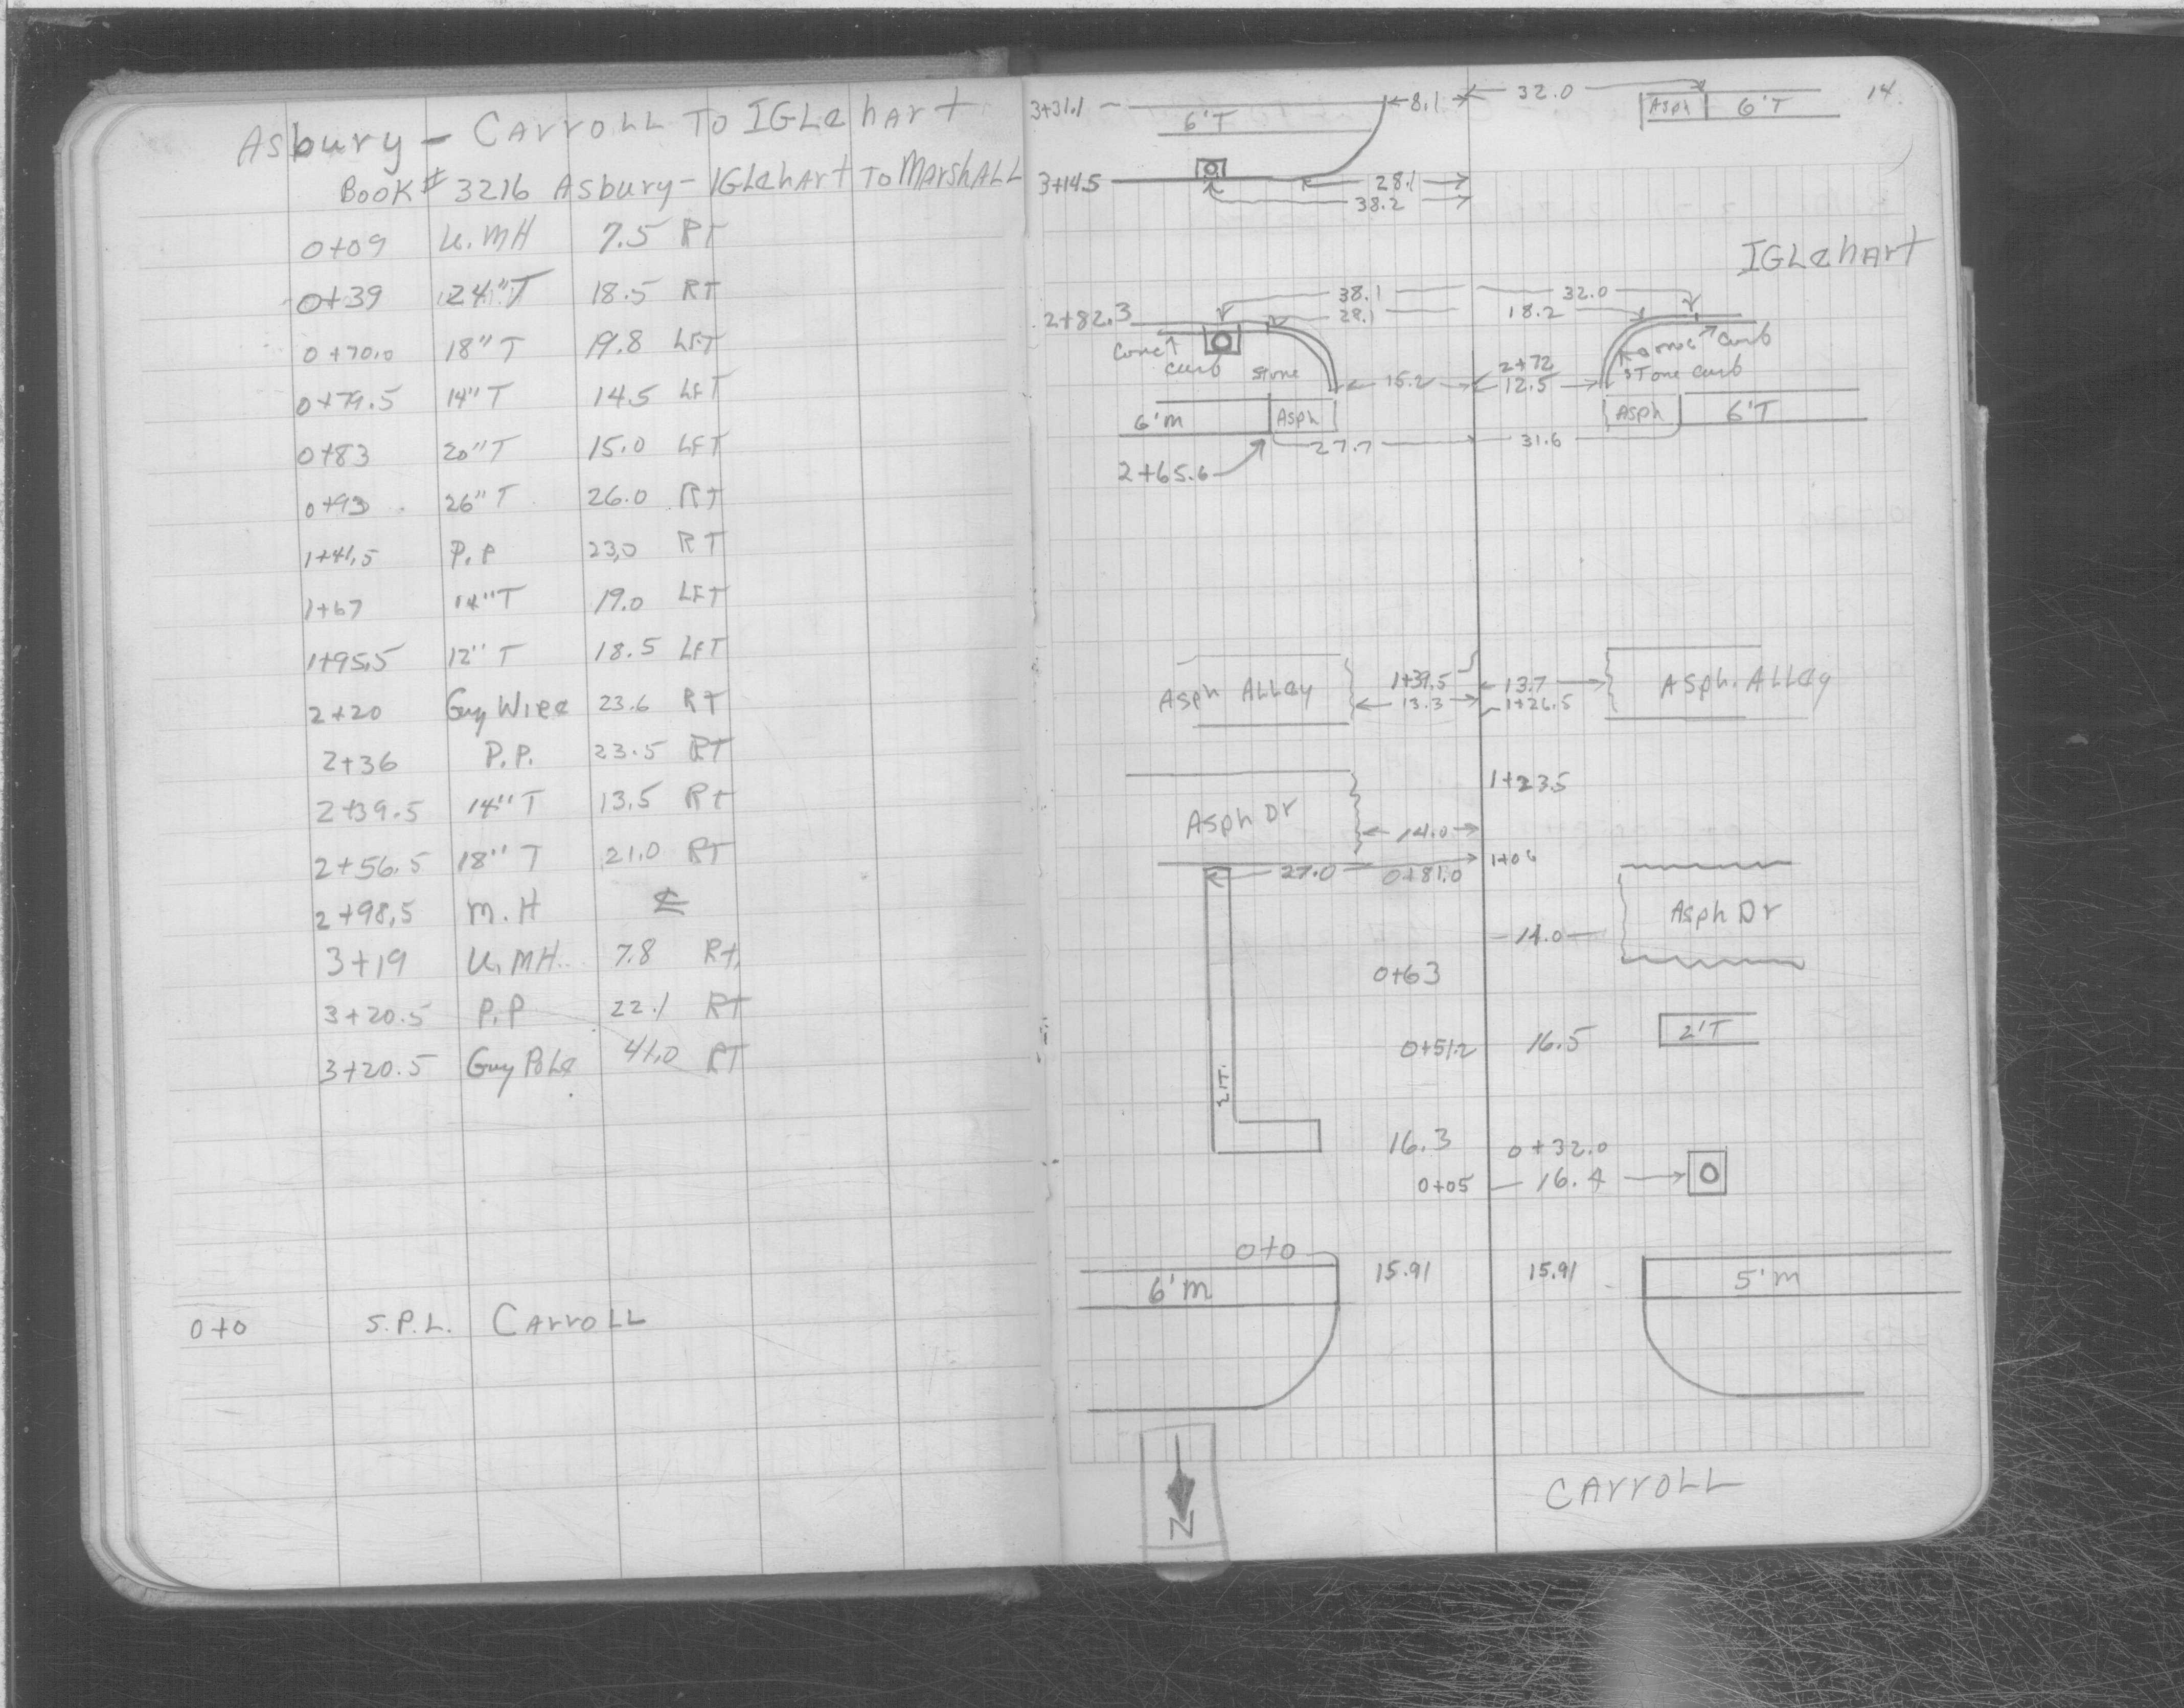 Asbury - CArroLL To IGLehart
Book # 3216 Asbury - IGLehart To MarshALL
0+09 U.MH 7.5 RT
0+39 24"T 18.5 RT
0+70.0 18"T 19.8 LFT
0+79.5 14"T 14.5 LFT
0+83 20"T 15.0 LFT
0+93 26"T 26.0 RT
1+41.5 P.P 23.0 RT
1+67 14"T 19.0 LFT
1+95.5 12"T 18.5 LFT
2+20 Guy Wire 23.6 RT
2+36 P.P. 23.5 RT
2+39.5 14"T 13.5 Rt
2+56.5 18"T 21.0 RT
2+98.5 M.H ℄
3+19 U.MH. 7.8 Rt.
3+20.5 P.P 22.1 RT
3+20.5 Guy Pole 41.0 RT
0+0 S.P.L. CArroLL
14
3+31.1 6'T 8.1 32.0 Asph 6'T
3+14.5 28.1
38.2
IGLehArt
38.1 32.0
2+82.3 18.2
Conc curb
curb stone
Stone curb
2+72
15.2 12.5
6'm Asph Asph 6'T
27.7 31.6
2+65.6
Asph ALLey 1+39.5 13.7 Asph. ALLey
13.3 1+26.5
1+23.5
Asph Dr
14.0
27.0 0+81.0
Asph Dr
14.0
0+63
0+51.2 16.5 2'T
2'T.
16.3 0+32.0
0+05 16.4
0+0
6'm 15.91 15.91 5'm
N
CArroLL